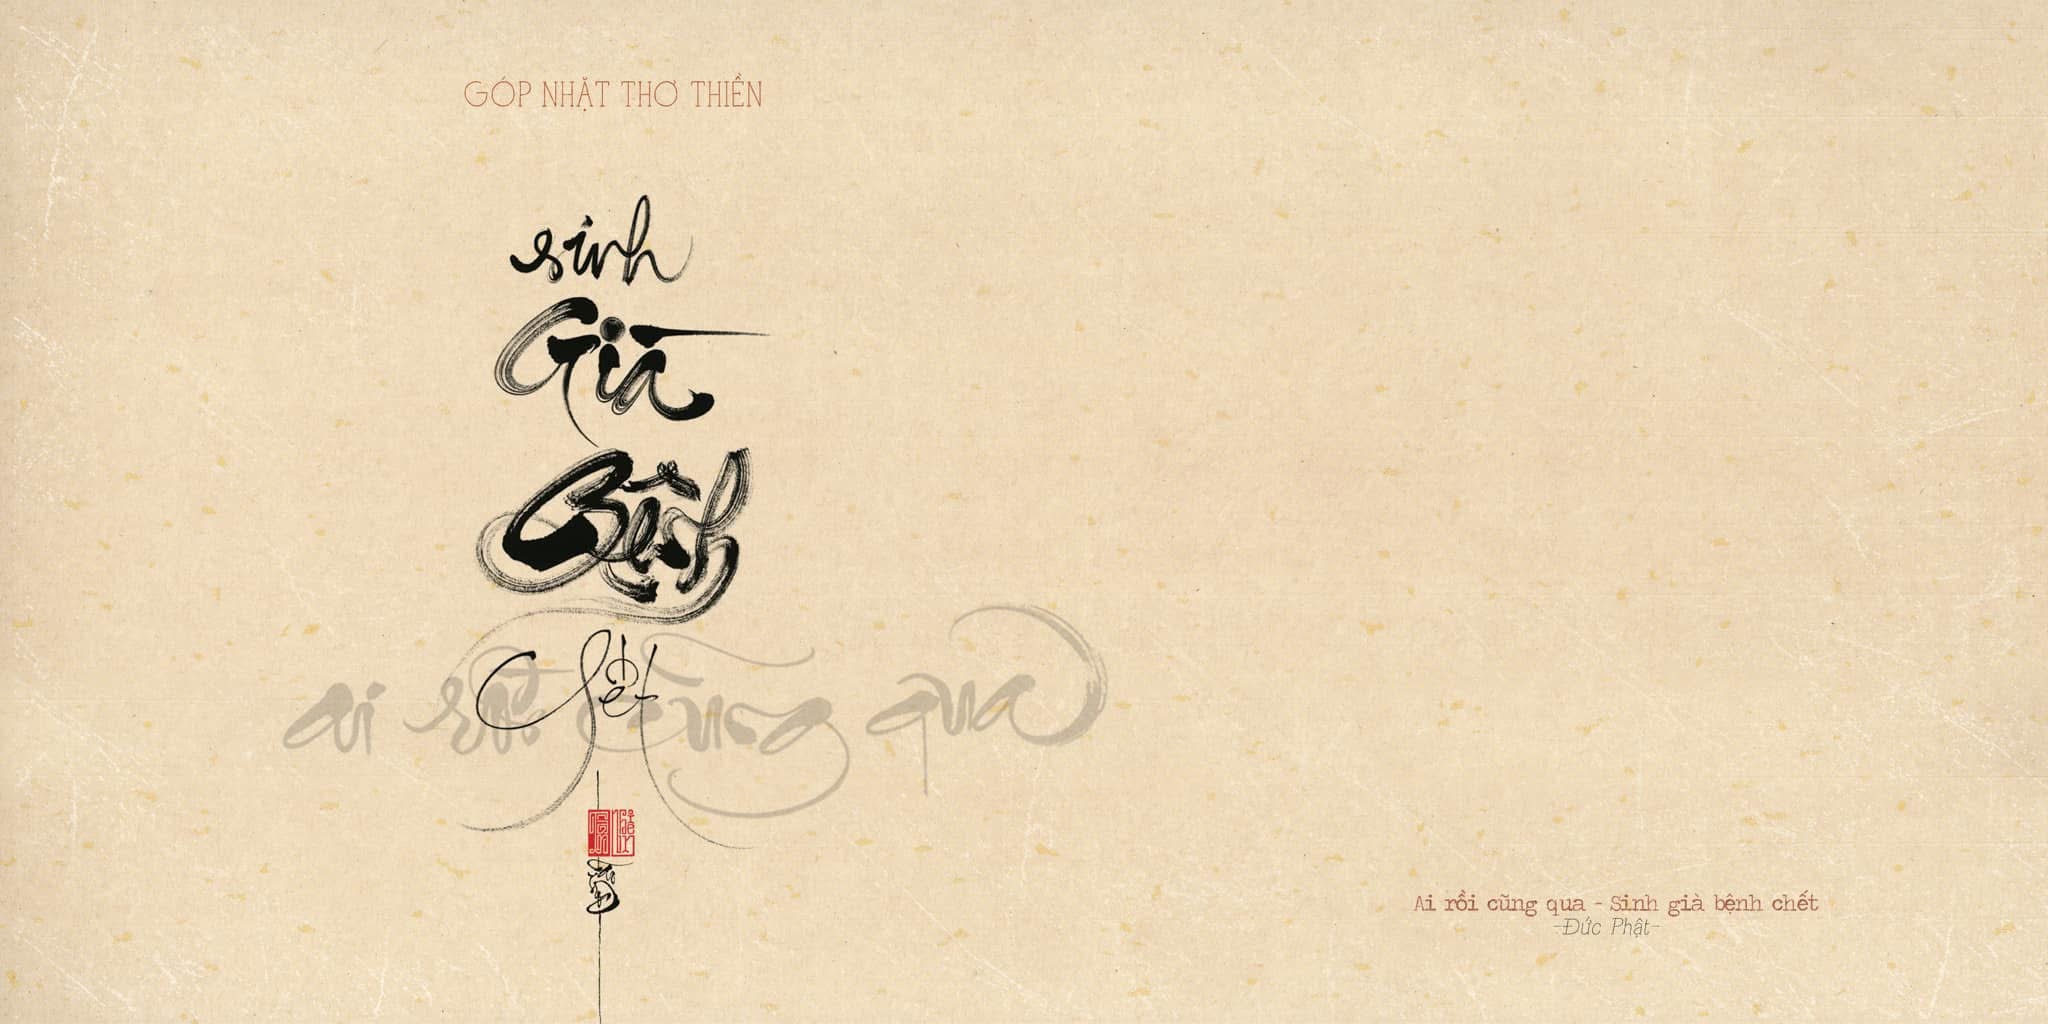 GÓP NHẶT THƠ THIỀN
sinh
Già
Bệnh
Chết
ai rồi cũng qua
Ai rồi cũng qua - Sinh già bệnh chết
-Đức Phật-